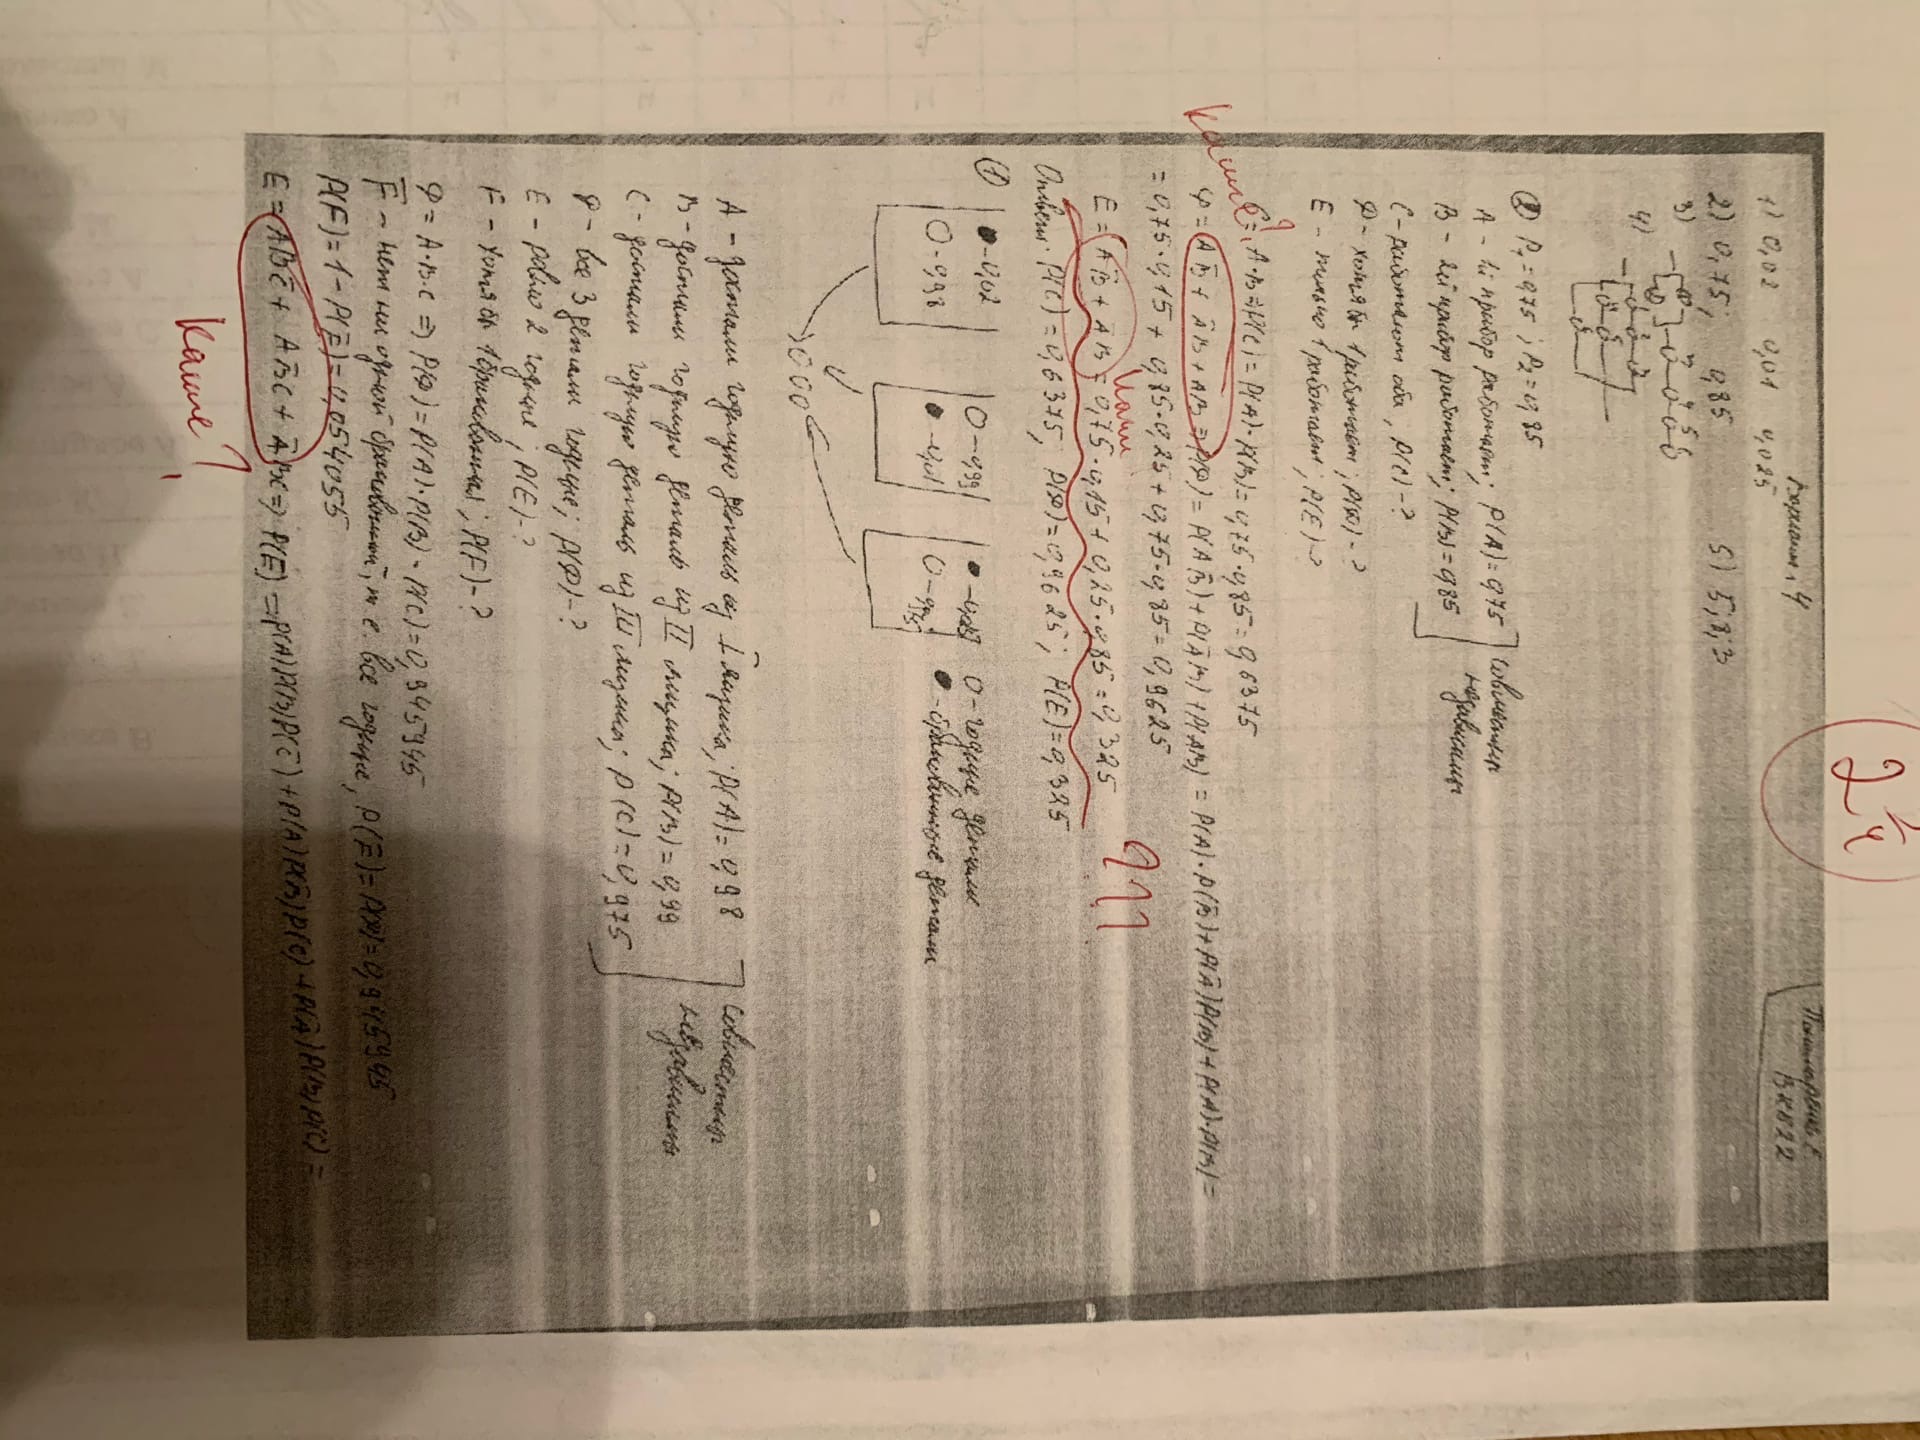 Вариант 4
1) 0,02 0,01 0,025
2) 0,75; 0,85 5) 5; 8; 3
3)
4)
② P₁ = 0,75; P₂ = 0,85
A - 1й прибор работает; P(A) = 0,75
B - 2й прибор работает; P(B) = 0,85
совместны
независимы
C - работают оба; P(C) - ?
D - хотя бы 1 работает; P(D) - ?
E - только 1 работает; P(E) - ?
C = A·B ⇒ P(C) = P(A)·P(B) = 0,75·0,85 = 0,6375
какие?
D = AB̄ + ĀB + AB ⇒ P(D) = P(AB̄) + P(ĀB) + P(AB) = P(A)·P(B̄) + P(Ā)P(B) + P(A)·P(B) =
= 0,75·0,15 + 0,85·0,25 + 0,75·0,85 = 0,9625
E = AB̄ + ĀB = 0,75·0,15 + 0,25·0,85 = 0,325
Ответ: P(C) = 0,6375, P(D) = 0,9625; P(E) = 0,325
①
● - 0,02
O - 0,98
O - 0,99
● - 0,01
● - 0,025
O - 0,975
O - годные детали
● - бракованные детали
A - достали годную деталь из I ящика; P(A) = 0,98
B - достали годную деталь из II ящика; P(B) = 0,99
C - достали годную деталь из III ящика; P(C) = 0,975
совместны
независимы
D - все 3 детали годные; P(D) - ?
E - ровно 2 годные; P(E) - ?
F - хотя бы 1 бракованная; P(F) - ?
D = A·B·C ⇒ P(D) = P(A)·P(B)·P(C) = 0,945945
F̄ - нет ни одной бракованной, т.е. все годные, P(F̄) = P(D) = 0,945945
P(F) = 1 - P(F̄) = 0,054055
E = ABC̄ + AB̄C + ĀBC ⇒ P(E) = P(A)P(B)P(C̄) + P(A)P(B̄)P(C) + P(Ā)P(B)P(C) =
какие?